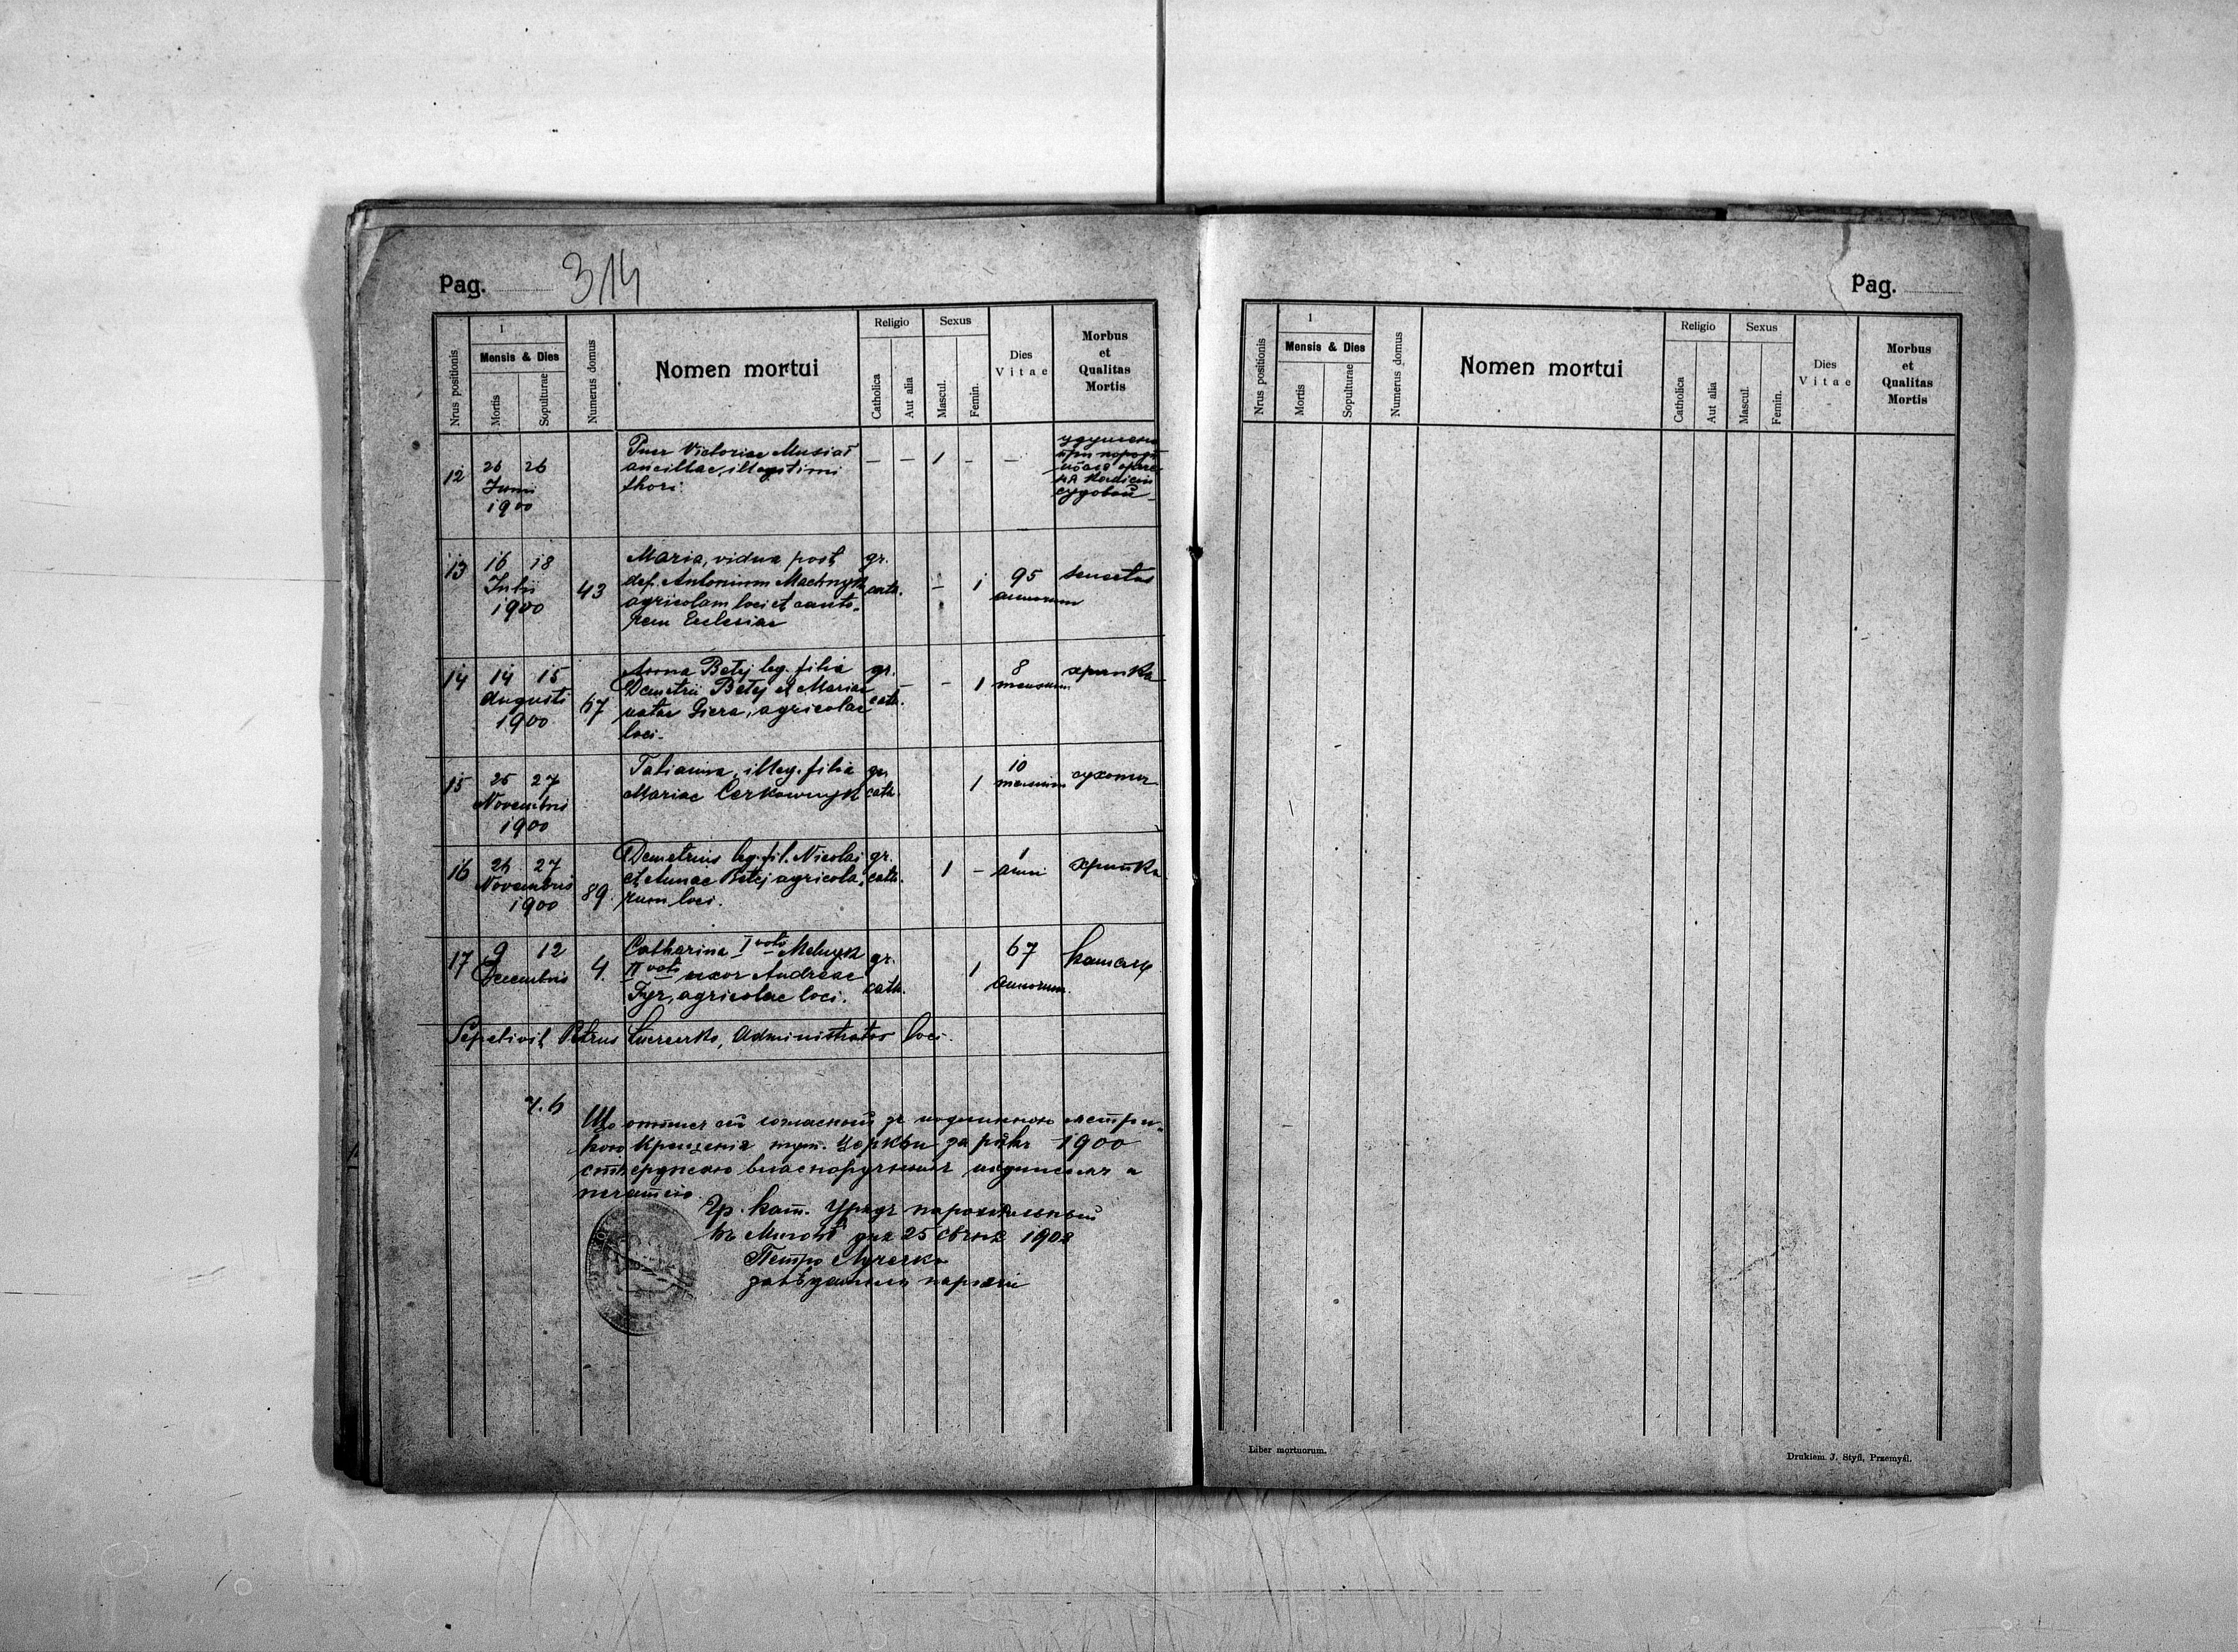 Pag. 314
Nrus positionis
1
Mensis & Dies
Mortis
Sepulturae
Numerus domus
Nomen mortui
Religio
Catholica
Aut alia
Sexus
Mascul.
Femin.
Dies
Vitae
Morbus
et
Qualitas
Mortis
12
26 26
Junii
1900
Puer Victoriae Musiał
ancillae, illegitimi
thori.
— — 1 - —
при
судовой
13
16 18
Julii
1900
43
Maria, vidua post
def. Antonium Machnyk
agricolam loci et canto-
rem Ecclesiae
gr.
cath.
- 1
95
annorum
senectus
14
14 15
Augusti
1900
67
Anna Betej leg. filia
Demetrii Betej et Mariae
natae Giera, agricolae
loci.
gr.
cath.
- 1
8
mensium
хрипка
15
25 27
Novembris
1900
Tatianna, illeg. filia
Mariae Cerkownyk
gr.
cath.
1
10
mensium
сухоты
16
26 27
Novembris
1900
89.
Demetrius leg. fil. Nicolai
et Annae Betej agricola-
rum loci.
gr.
cath.
1 -
1
anni
хрипка
17
9 12
Decembris
4.
Catharina I voto Melnyk
II voto uxor Andreae
Fyr, agricolae loci.
gr.
cath.
1
67
annorum.
кашель
Sepelivit Petrus Administrator loci.
Ч. 6
Що отпис сей согласный зъ метри-
кою Крещенія тут. Церкви за рокъ 1900
стверджаю власноручнымъ подписомъ и
печатію.
Гр. кат. Урядъ парохіяльный
дня 25 Сѣчня 1902
Петро
завѣдатель парохіи
Pag.
Nrus positionis
1
Mensis & Dies
Mortis
Sepulturae
Numerus domus
Nomen mortui
Religio
Catholica
Aut alia
Sexus
Mascul.
Femin.
Dies
Vitae
Morbus
et
Qualitas
Mortis
Liber mortuorum.
Drukiem J. Styfi, Przemyśl.